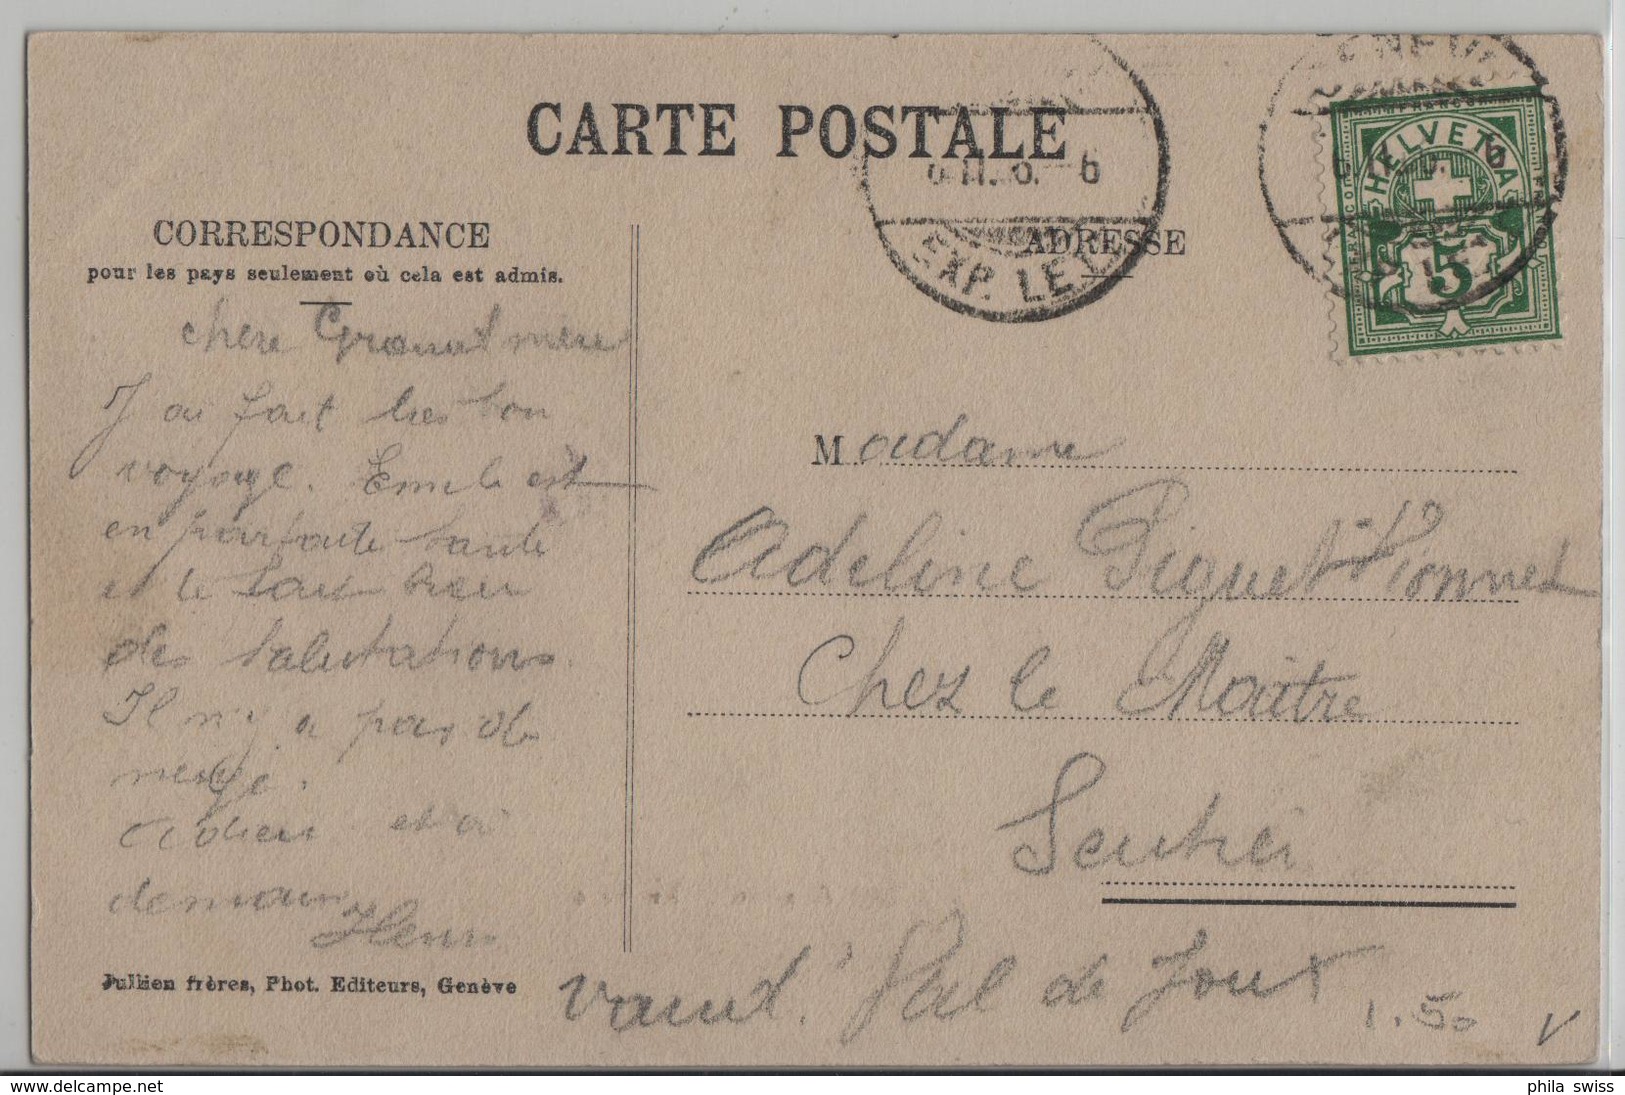 CARTE POSTALE
CORRESPONDANCE
pour les pays seulement où cela est admis.
ADRESSE
EXP. LET.
FRANCO
HELVETIA
5
chère Grand mère
J ai fait très bon
voyage. Emile est
en parfaite santé
et te fait bien
des salutations.
Il n'y a pas de
neige.
Adieu et à
demain
Henri
Jullien frères, Phot. Editeurs, Genève
Madame
Adeline Piguet-Vionnet
Chez le Maître
Sentier
Vaud. Val de Joux
1.50
delcampe.net
phila_swiss